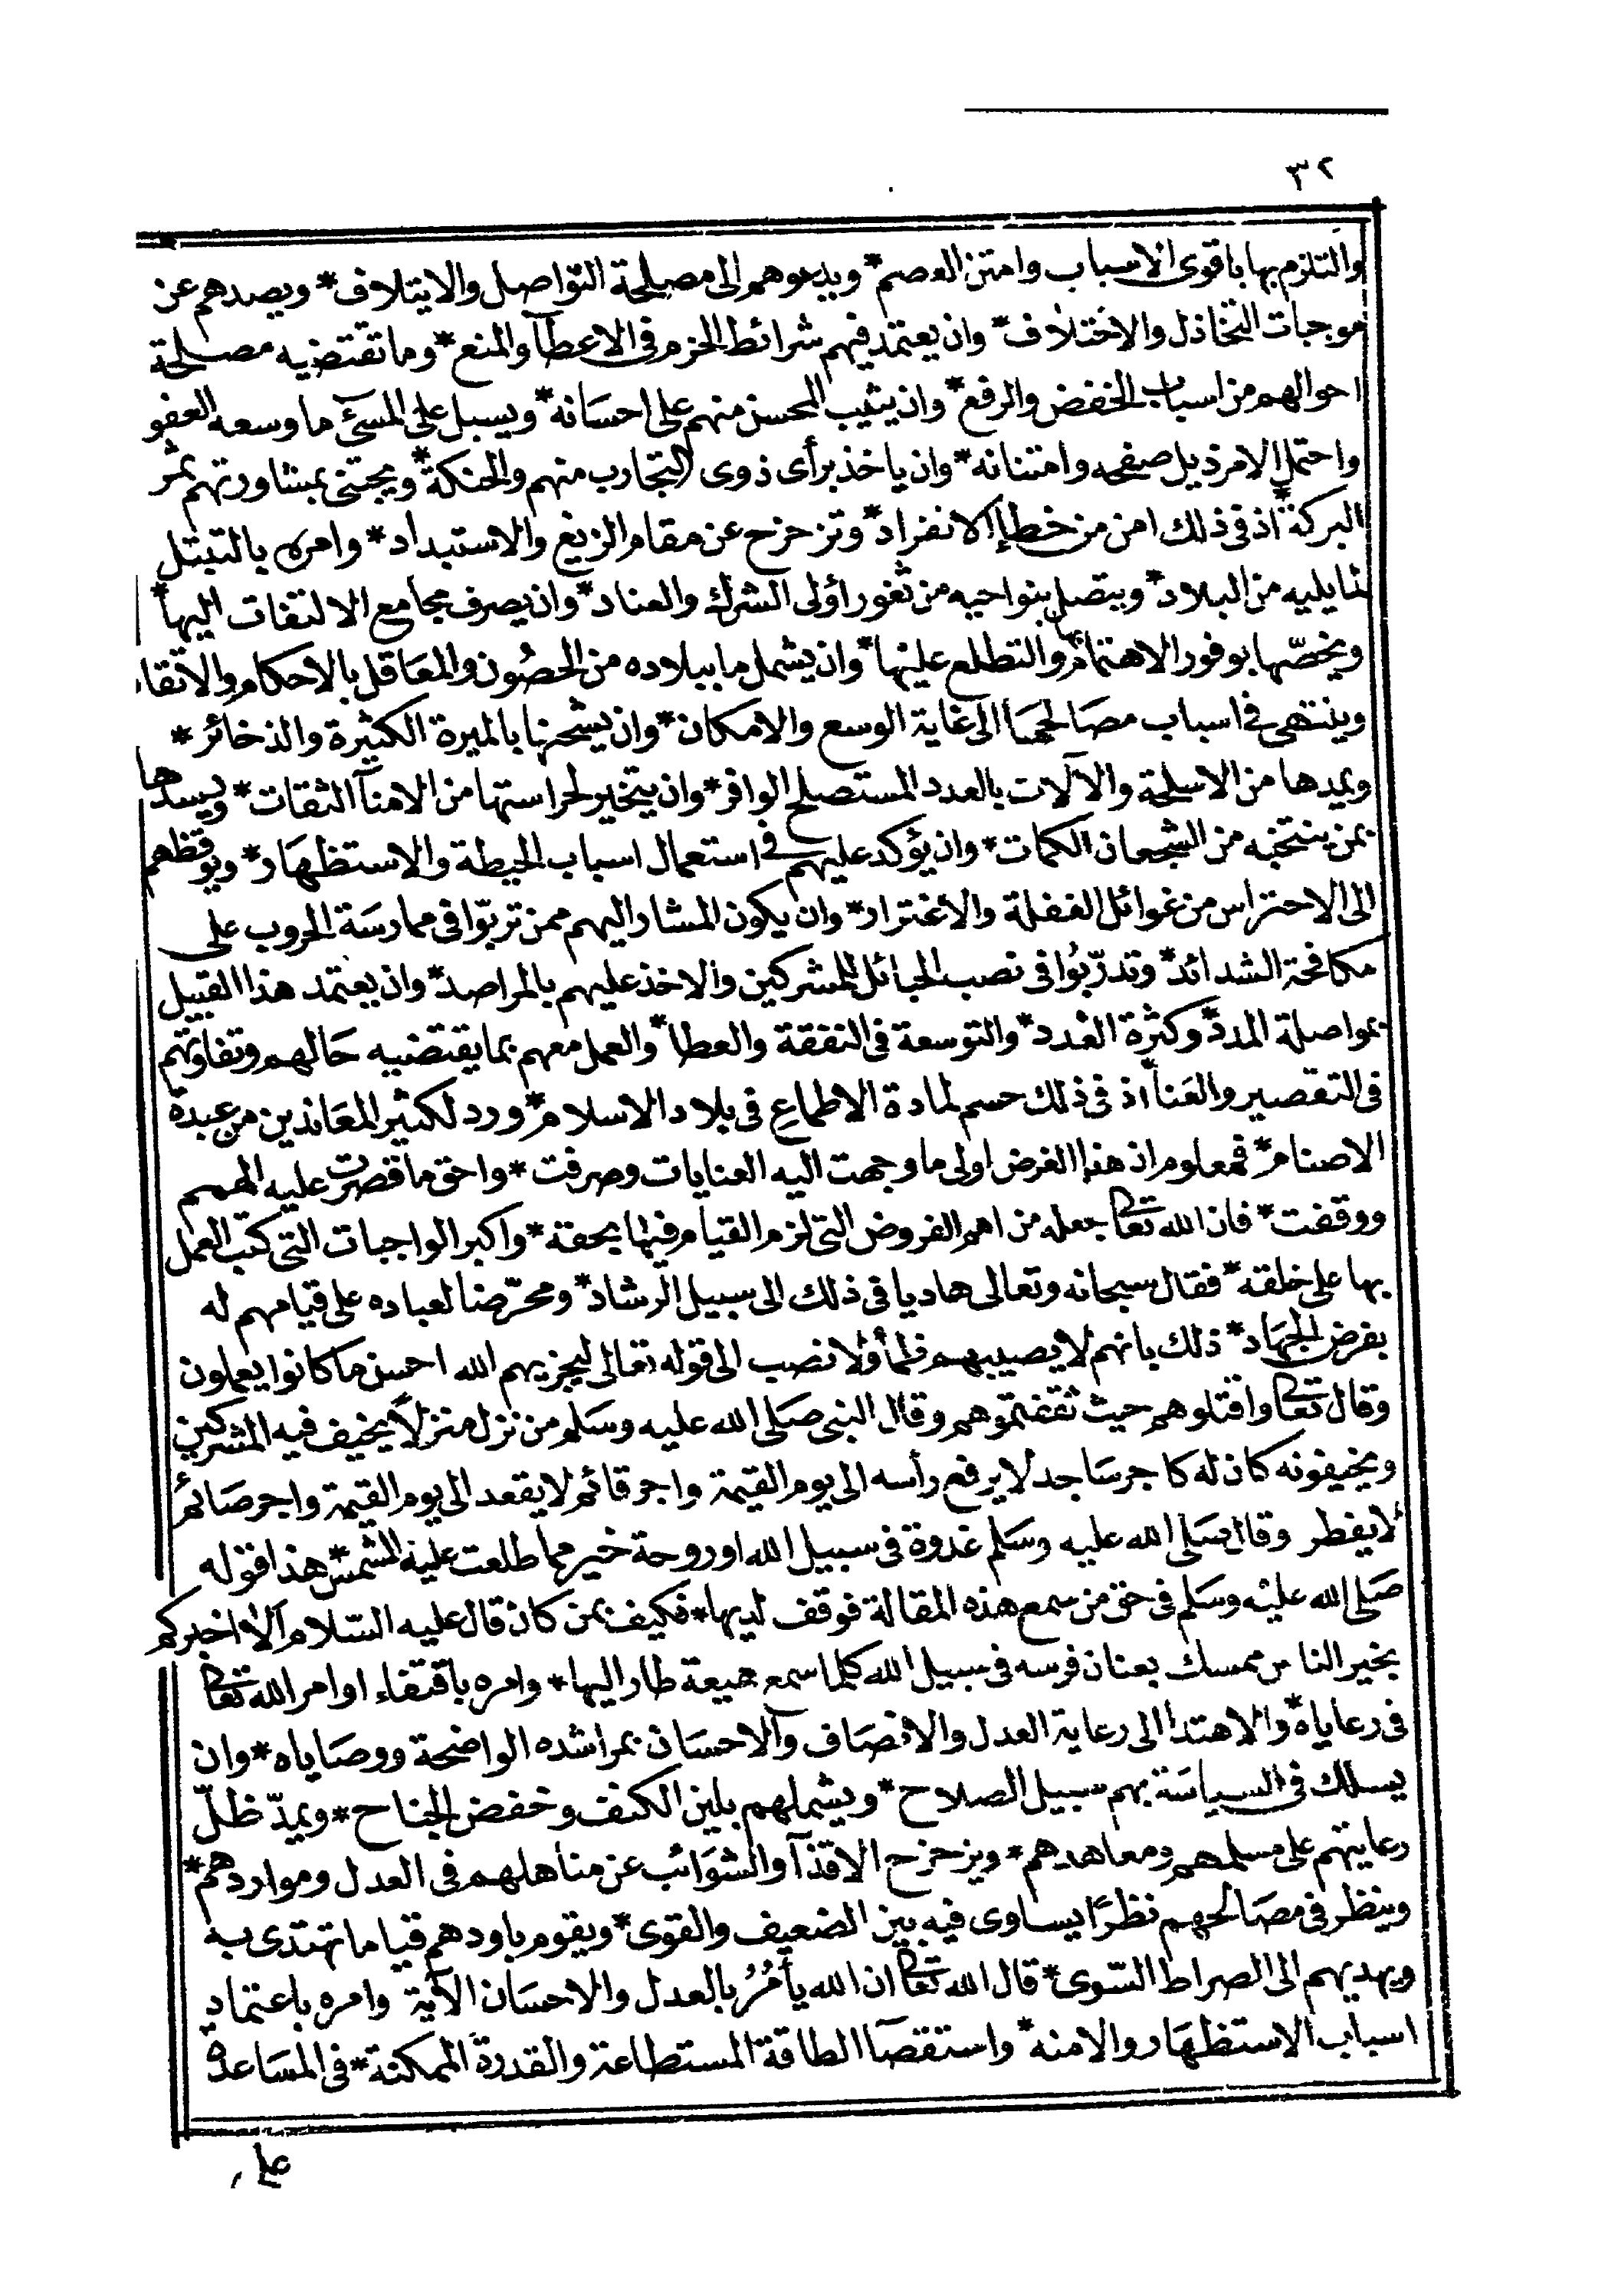 ٣٢
والتلزم بها باقوى الاسباب وامتن العصم * ويدعوهم الى مصلحة التواصل والايتلاف * ويصدهم عن
موجبات التخاذل والاختلاف * وان يعتمد فيهم شرائط الحزم فى الاعطآ والمنع * وما تقتضيه مصلحة
احوالهم من اسباب الخفض والرفع * وان يثيب المحسن منهم على احسانه * ويسبل على المسئ ما وسعه العفو
واحتمل الامر ذيل صفحه وامتنانه * وان ياخذ برأى ذوى التجارب منهم والحنكة * ويجتنى بمشاورتهم ثمر
البركة * اذ فى ذلك امن من خطإ الانفراد * وتزحزح عن مقام الزيغ والاستبداد * وامره بالتبتل
لما يليه من البلاد * ويتصل بنواحيه من ثغور اؤلى الشرك والعناد * وان يصرف مجامع الالتفات اليها *
ويخصّها بوفور الاهتمام بها والتطلع عليها * وان يشمل ما ببلاده من الحصُون والمعَاقل بالاحكام والاتقا
وينتهى فى اسباب مصَالحهَا الى غاية الوسع والامكان * وان يشحنها بالميرة الكثيرة والذخائر *
ويمدها من الاسلحة والالات بالعدد المستصلح الوافر * وان يتخير لحراستها من الامنآ الثقات * ويسدها
بمن ينتخبه من الشجعان الكمات * وان يؤكد عليهم فى استعمال اسباب الحيطة والاستظهَار * ويوقظهم
الى الاحتراس من غوائل الغفلة والاغترار * وان يكون المشار اليهم ممن تربّوا فى ممارسَة الحروب على
مكافحة الشدائد * وتدرّبُوا فى نصب الحبائل للمشركين والاخذ عليهم بالمراصد * وان يعتمد هذا القبيل
بمواصلة المدد * وكثرة العُدد * والتوسعة فى النفقة والعطا * والعمل معهم بما يقتضيه حَالهم وتفاوتهم
فى التقصير والغنآ * اذ فى ذلك حسم لمادة الاطماع فى بلاد الاسلام * ورد لكثير المعَاندين من عبدة
الاصنام * فمعلوم ان هذا الغرض اولى ما وجهت اليه العنايات وصرفت * واحق ما قصرت عليه الهمم
ووقفت * فان الله تعالى جعله من اهم الفروض التى لزم القيام فيها بحقة * واكبر الواجبات التى كتب العمل
بها على خلقه * فقال سبحانه وتعالى هاديا فى ذلك الى سبيل الرشاد * ومحرّضا لعباده على قيامهم له
بفرض الجهَاد * ذلك بانهم لا يصيبهم ظمأ ولا نصب الى قوله تعالى ليجزيهم الله احسن ما كانوا يعملون
وقال تعالى واقتلوهم حيث ثقفتموهم وقال النبى صَلى الله عليه وسَلم من نزل منزلاً يخيف فيه المشركين
ويخيفونه كان له كاجر سَاجد لا يرفع رأسه الى يوم القيمة واجر قائم لا يقعد الى يوم القيمة واجر صَائم
لا يفطر وقال صَلى الله عليه وسَلم غدوة فى سبيل الله او روحة خير مما طلعت عليه الشمس * هذا قوله
صَلى الله عليْه وسَلم فى حق من سمع هذه المقالة فوقف لديها * فكيف بمن كان قال عليه السّلام ألا اخبركم
بخير الناس ممسك بعنان فرسه فى سبيل الله كلما سمع هيعة طار اليها * وامره باقتفاء اوامر الله تعالى
فى رعاياه * والاهتدا الى رعاية العدل والانصَاف والاحسَان بمراشده الواضحة ووصَاياه * وان
يسلك فى السياسَة بهم سبيل الصلاح * ويشملهم بلين الكنف وخفض الجناح * ويمدّ ظلّ
رعايتهم على مسلمهم ومعاهدهم * ويزحزح الاقذآ والشوَائب عن مناهلهم فى العدل ومواردهم *
وينظر فى مصَالحهم نظرًا يساوى فيه بين الضعيف والقوى * ويقوم باودهم قياما تهتدى به
ويهديهم الى الصراط السّوى * قال الله تعالى ان الله يأمُرُ بالعدل والاحسَان الآية وامره باعتماد
اسباب الاستظهَار والامنه * واستقصآ الطاقة المستطاعة والقدرة الممكنة * فى المسَاعدة
على